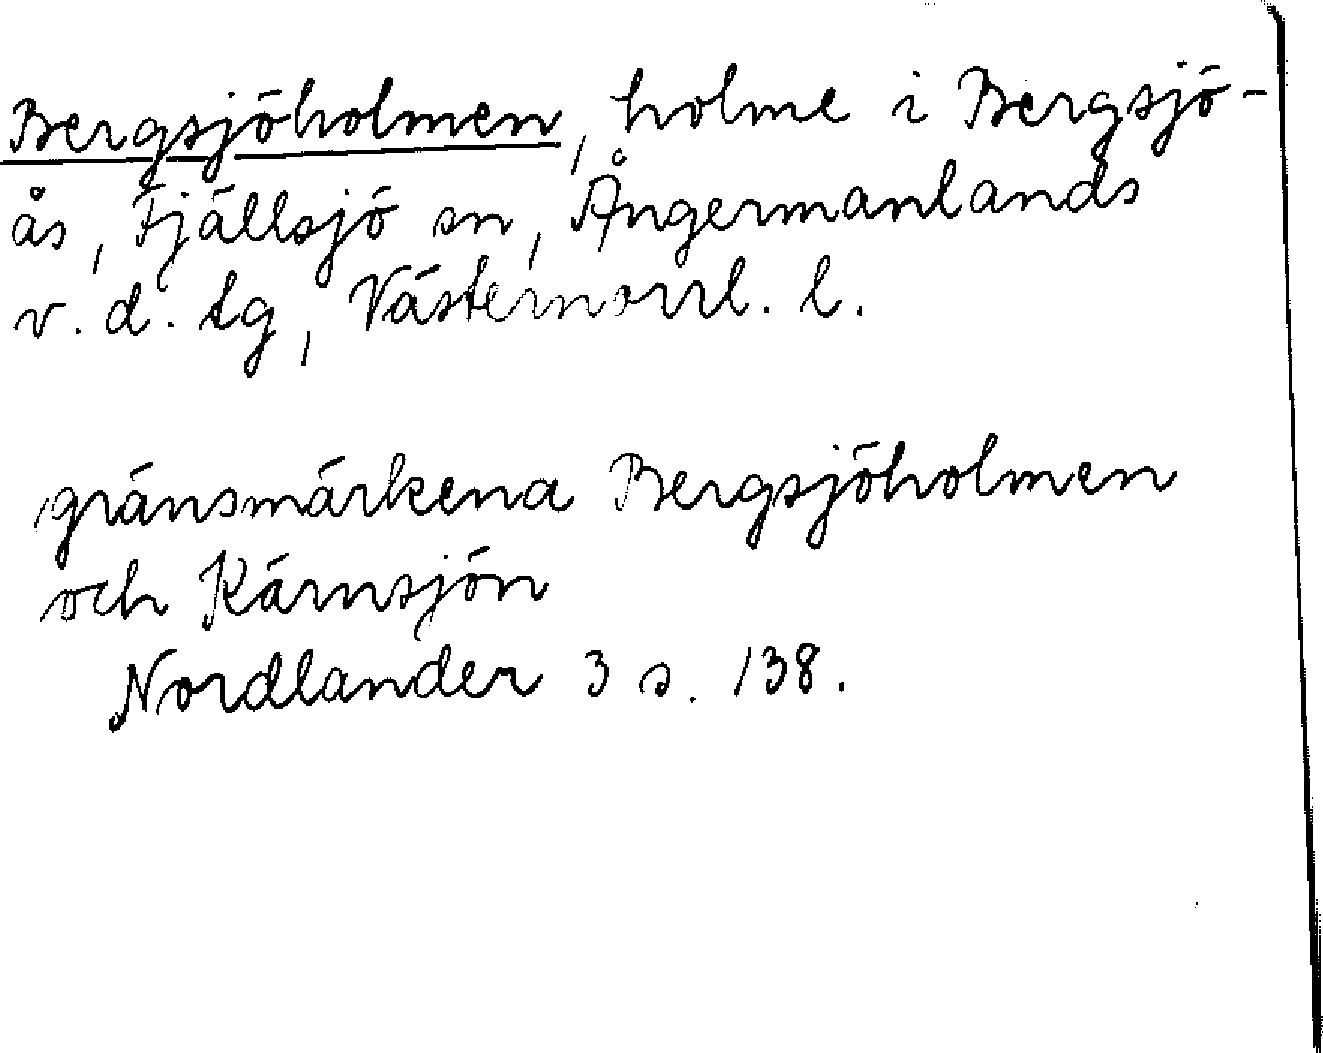 Bergsjöholmen, holme i Bergsjö-
ås, Fjällsjö sn, Ångermanlands
v. d. tg, Västernorrl. l.
gränsmärkena Bergsjöholmen
och Kärnsjön
Nordlander 3 s. 138.